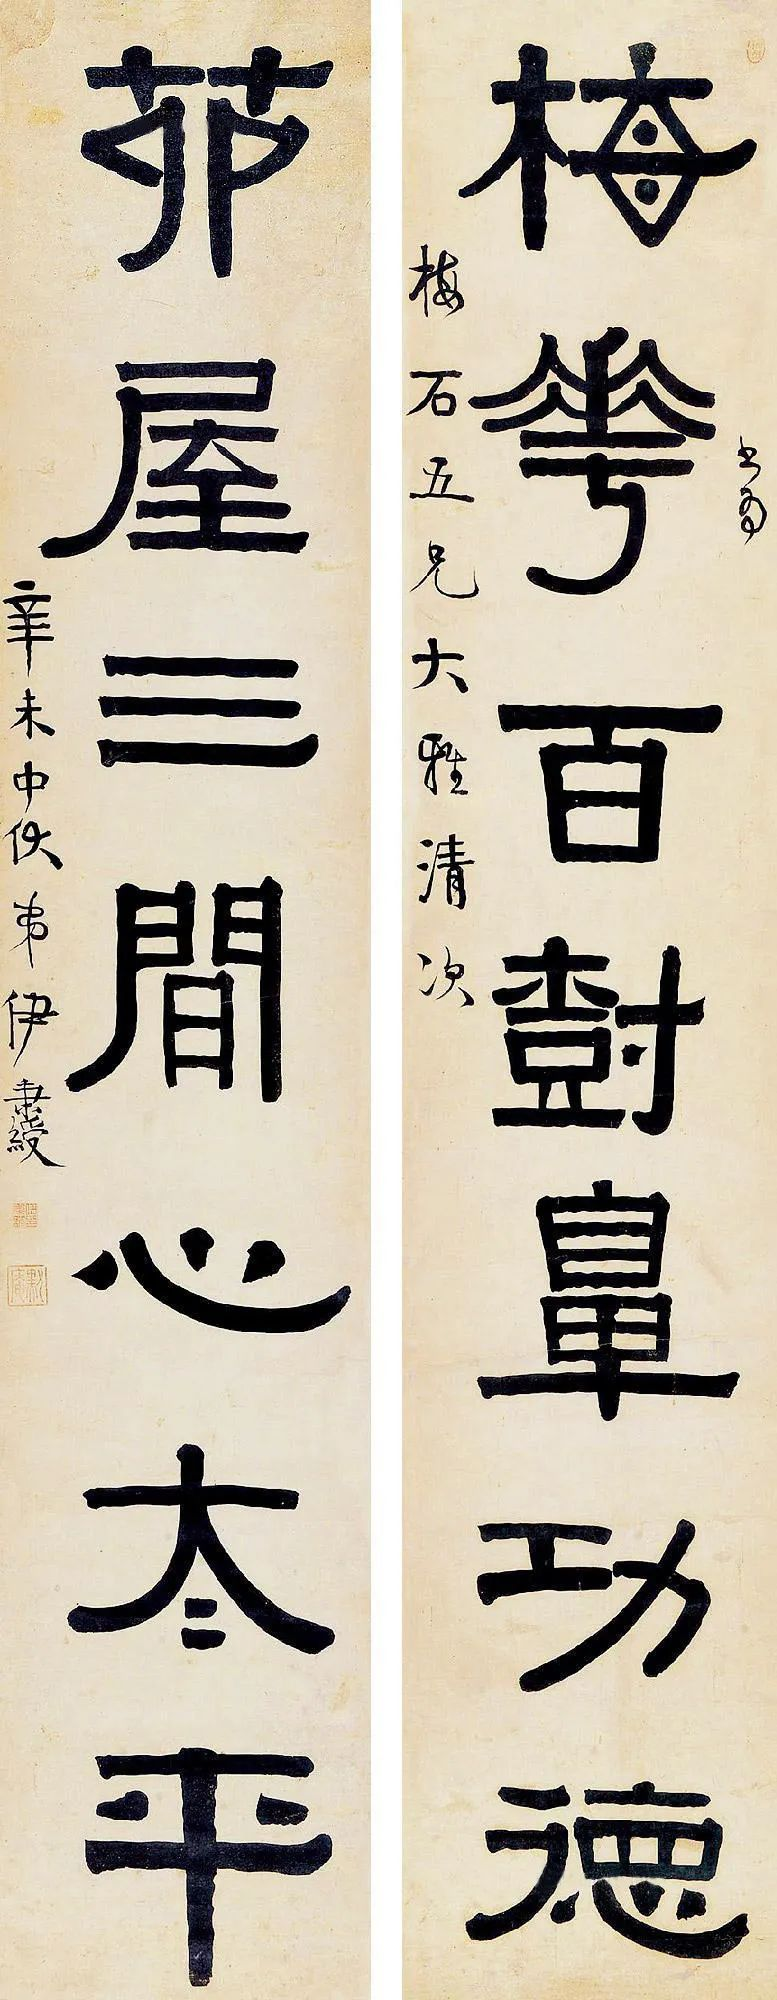 書為
梅華百樹鼻功德
梅石五兄大雅清次
茆屋三間心太平
辛未中伏弟伊秉綬